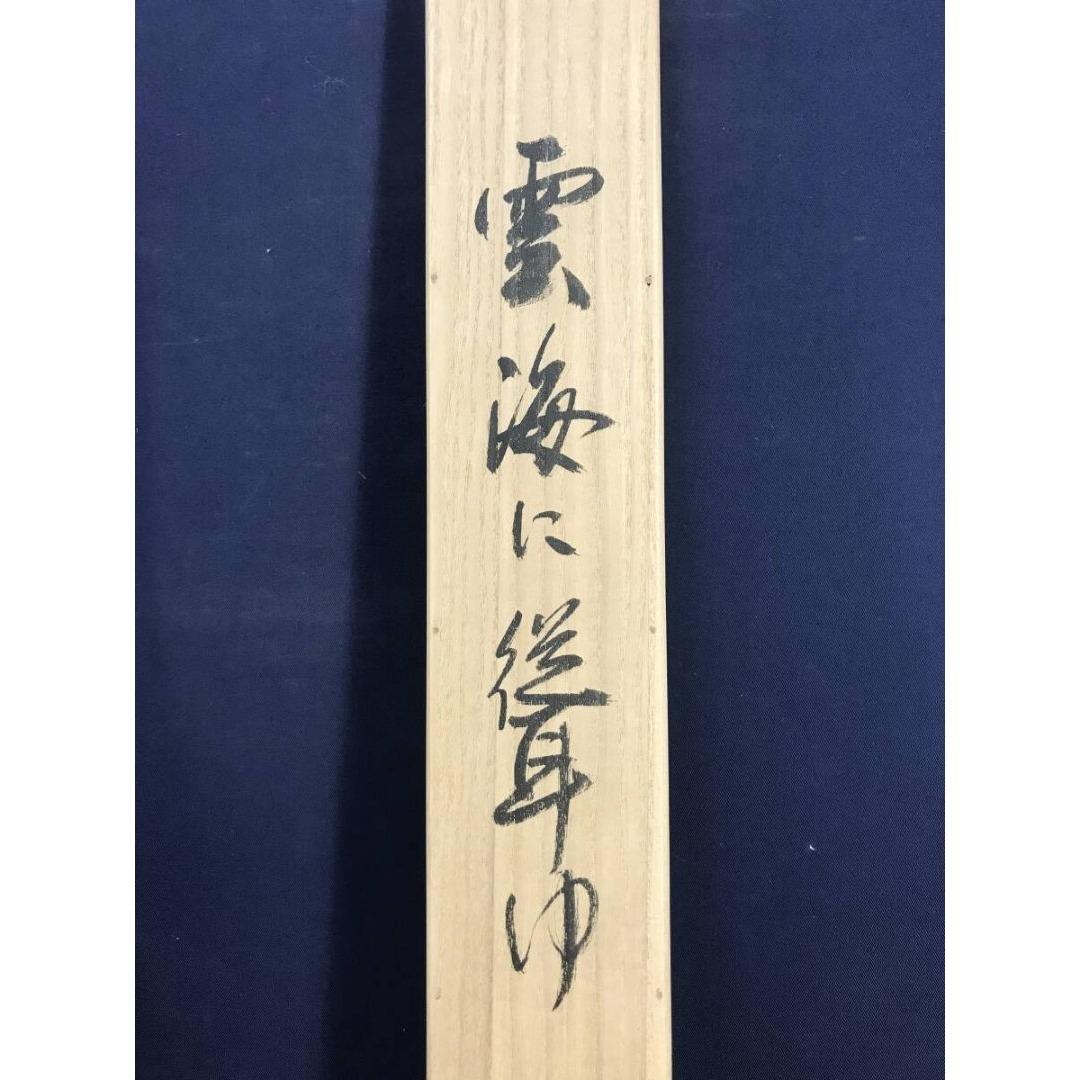 雲海に聳ゆ